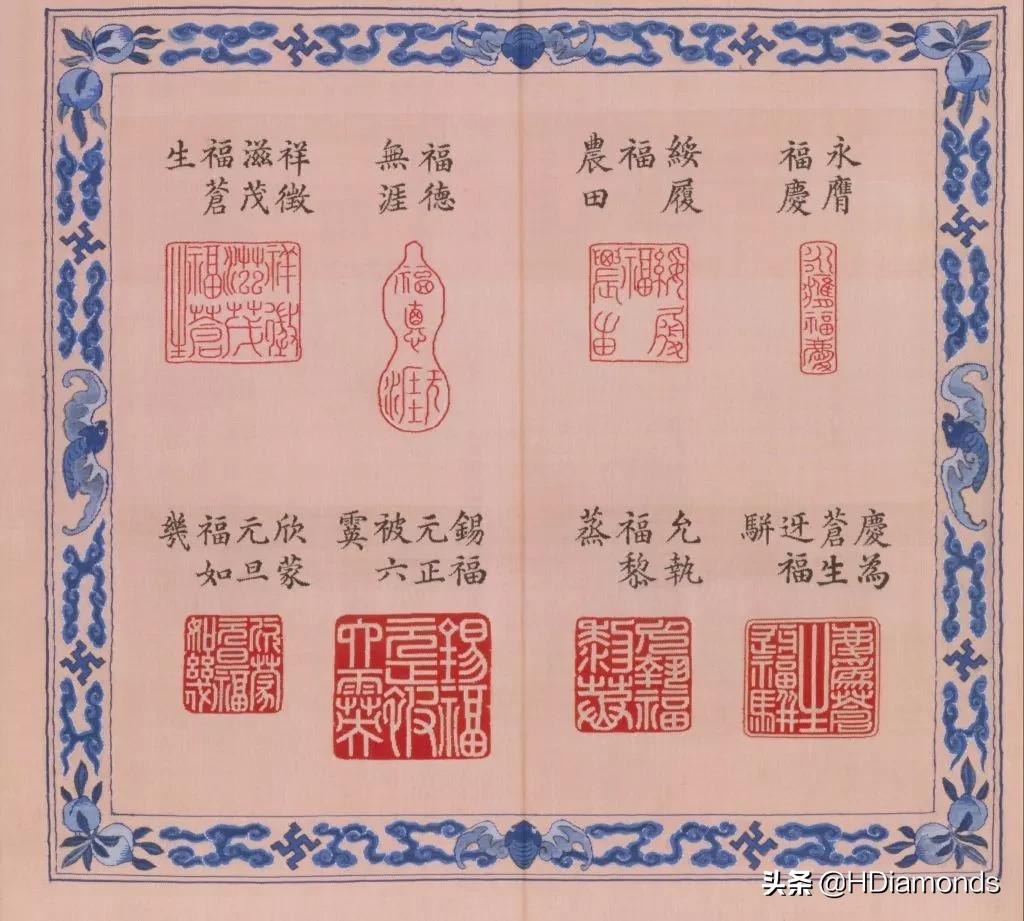 永膺
福慶
永膺福慶
綏履
福
農田
綏履
福
農田
福德
無涯
福德
無涯
祥徵
滋茂
福蒼
生
祥徵
滋茂
福蒼
生
慶為
蒼生
迓福
駢
慶為蒼
生
迓福駢
允執
福黎
蒸
允執福
黎蒸
錫福
元正
被六
霙
錫福
元正被
六霙
欣蒙
元旦
福如
幾
欣蒙
元旦福
如幾
头条 @HDiamonds